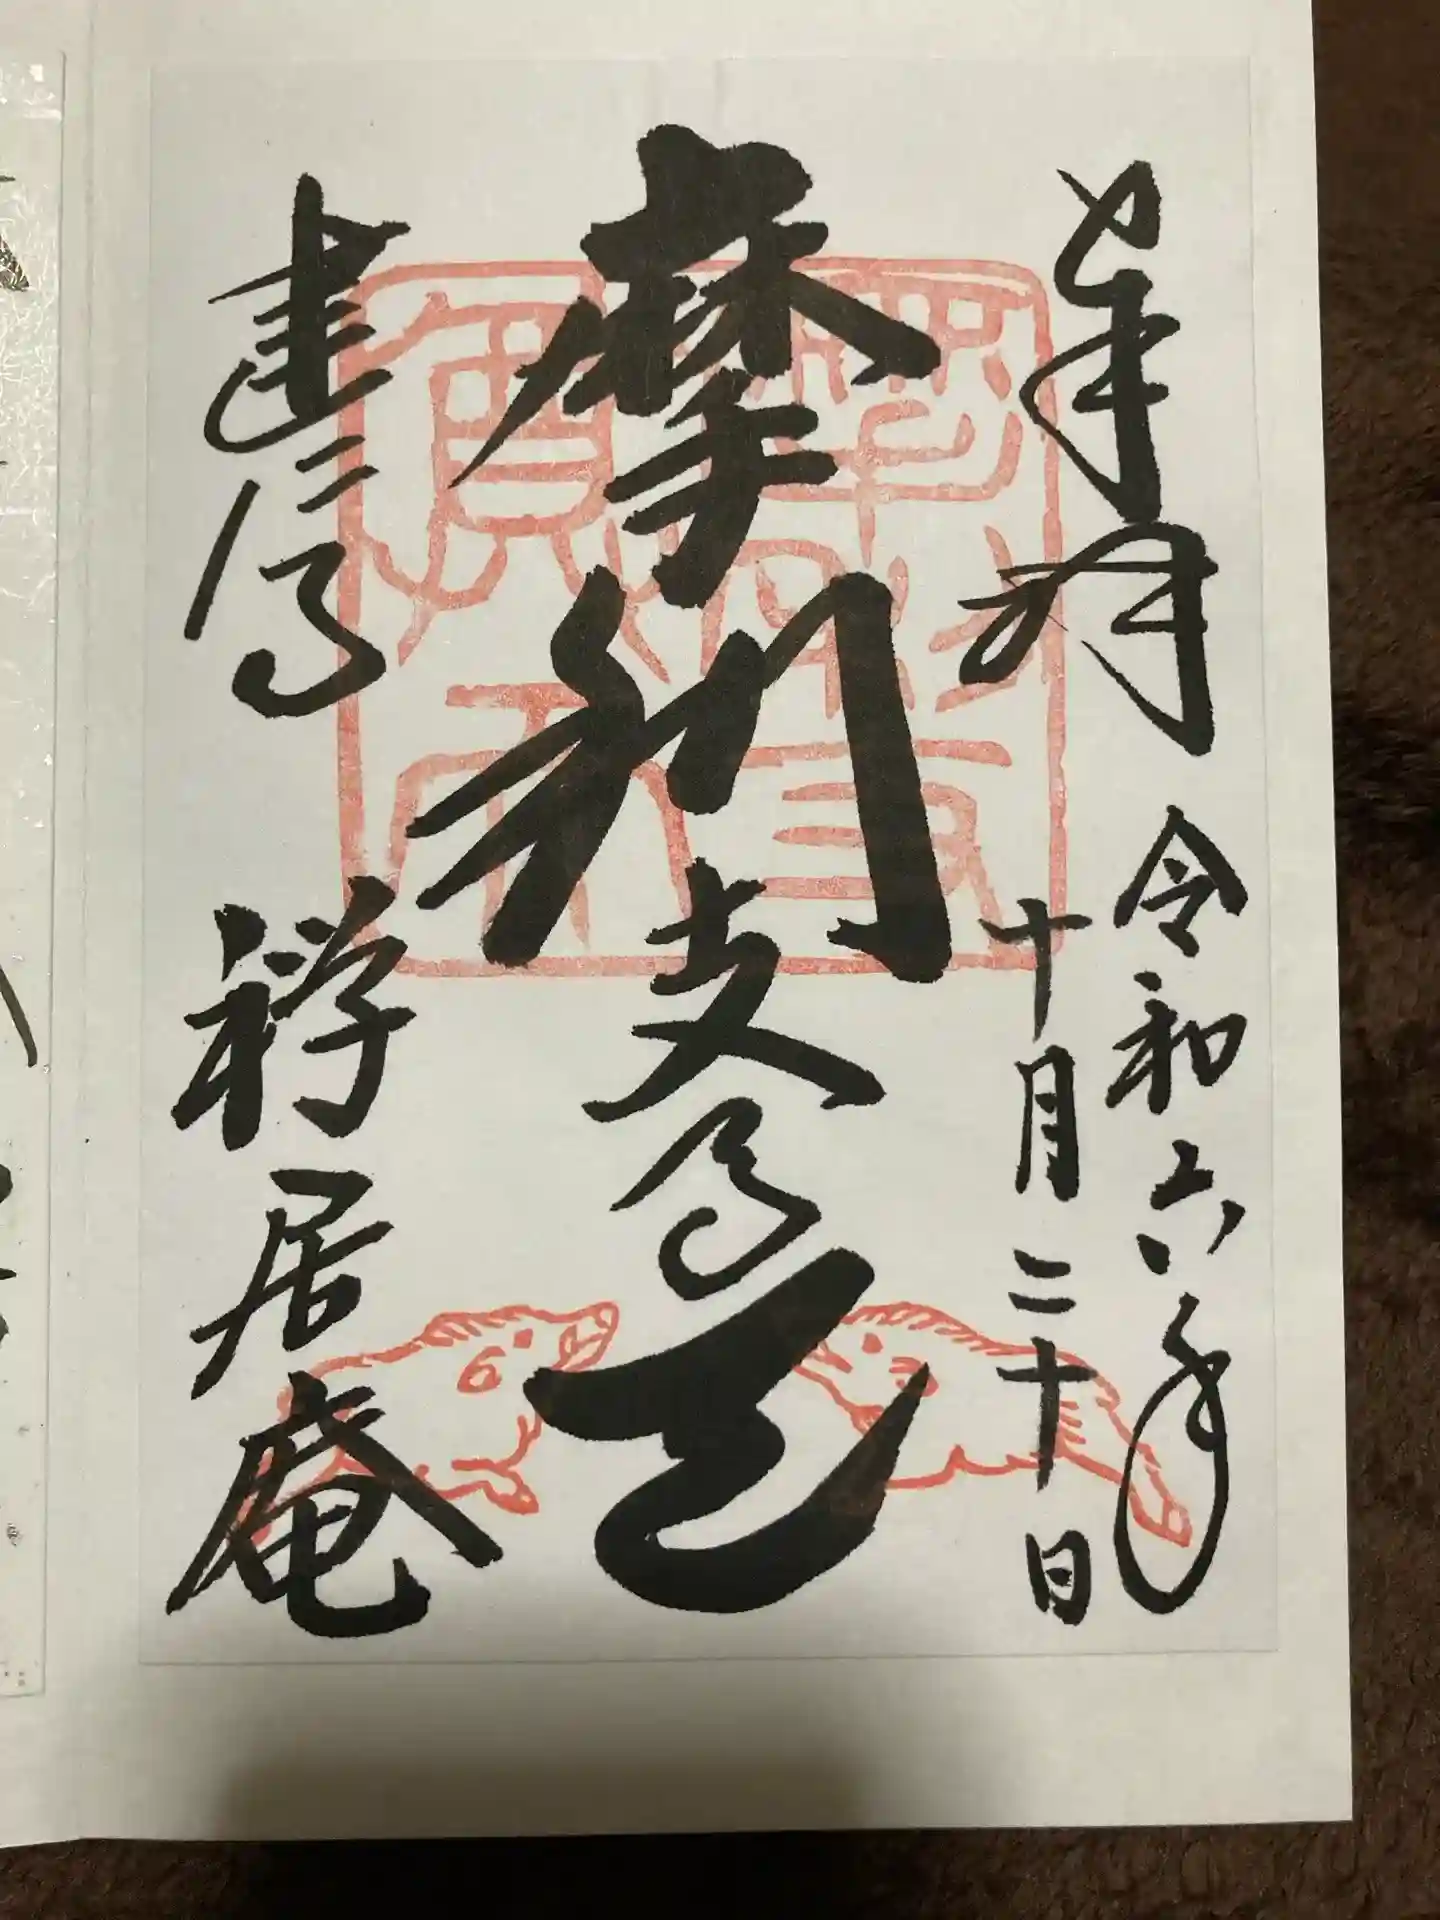 奉拝
令和六年
十月二十日
摩利支尊天
建仁寺
禅居庵